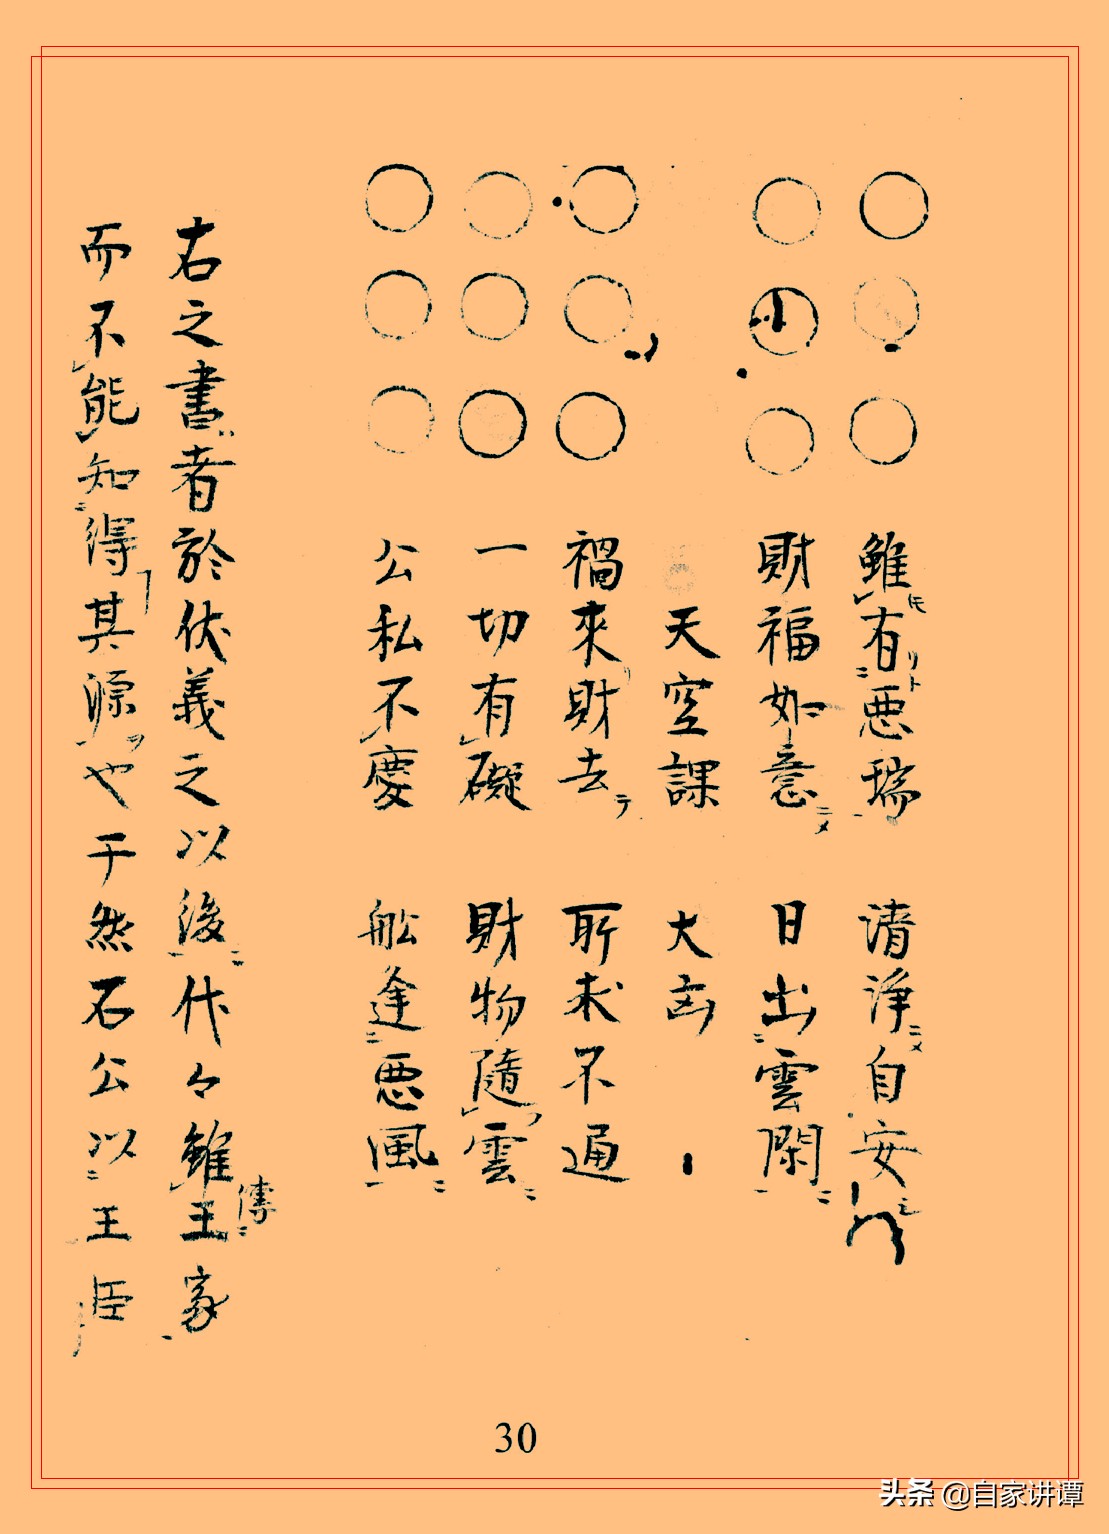 雖有悪瑞 清浄自安
財福如意 日出雲閑
天空課 大凶
禍來財去 所求不通
一切有礙 財物随雲
公私不慶 舩逢悪風
右之書者於伏義之以後代々雖傳王家
而不能知得其源也于然石公以王臣
30
头条 @自家讲谭